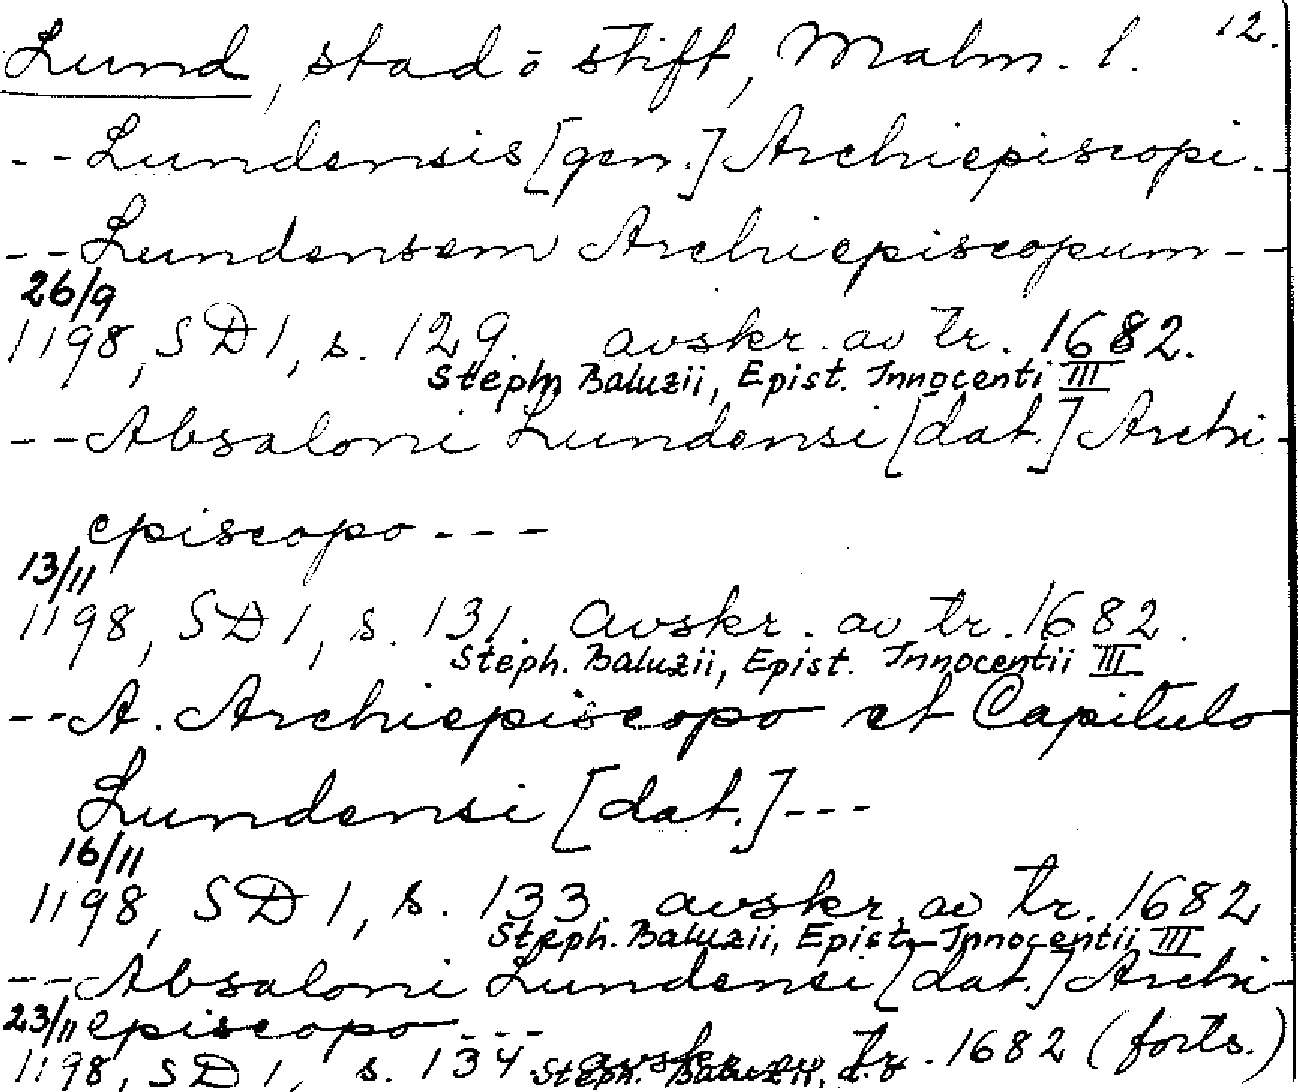 12.
Lund, stad o stift, Malm. l.
- - Lundensis [gen.] Archiepiscopi - -
- - Lundensem Archiepiscopum - -
26/9
1198, SD 1, s. 129. avskr. av tr. 1682.
Steph. Baluzii, Epist. Innocenti III
- - Absaloni Lundensi [dat.] Archi-
episcopo - - -
13/11
1198, SD 1, s. 131. avskr. av tr. 1682.
Steph. Baluzii, Epist. Innocentii III
- - A. Archiepiscopo et Capitulo
Lundensi [dat.] - - -
16/11
1198, SD 1, s. 133. avskr. av tr. 1682
Steph. Baluzii, Epist. Innocentii III
- - Absaloni Lundensi [dat.] Archi-
23/11 episcopo - - -
1198, SD 1, s. 134. avskr. av tr. 1682 (forts.)
Steph. Baluzii,